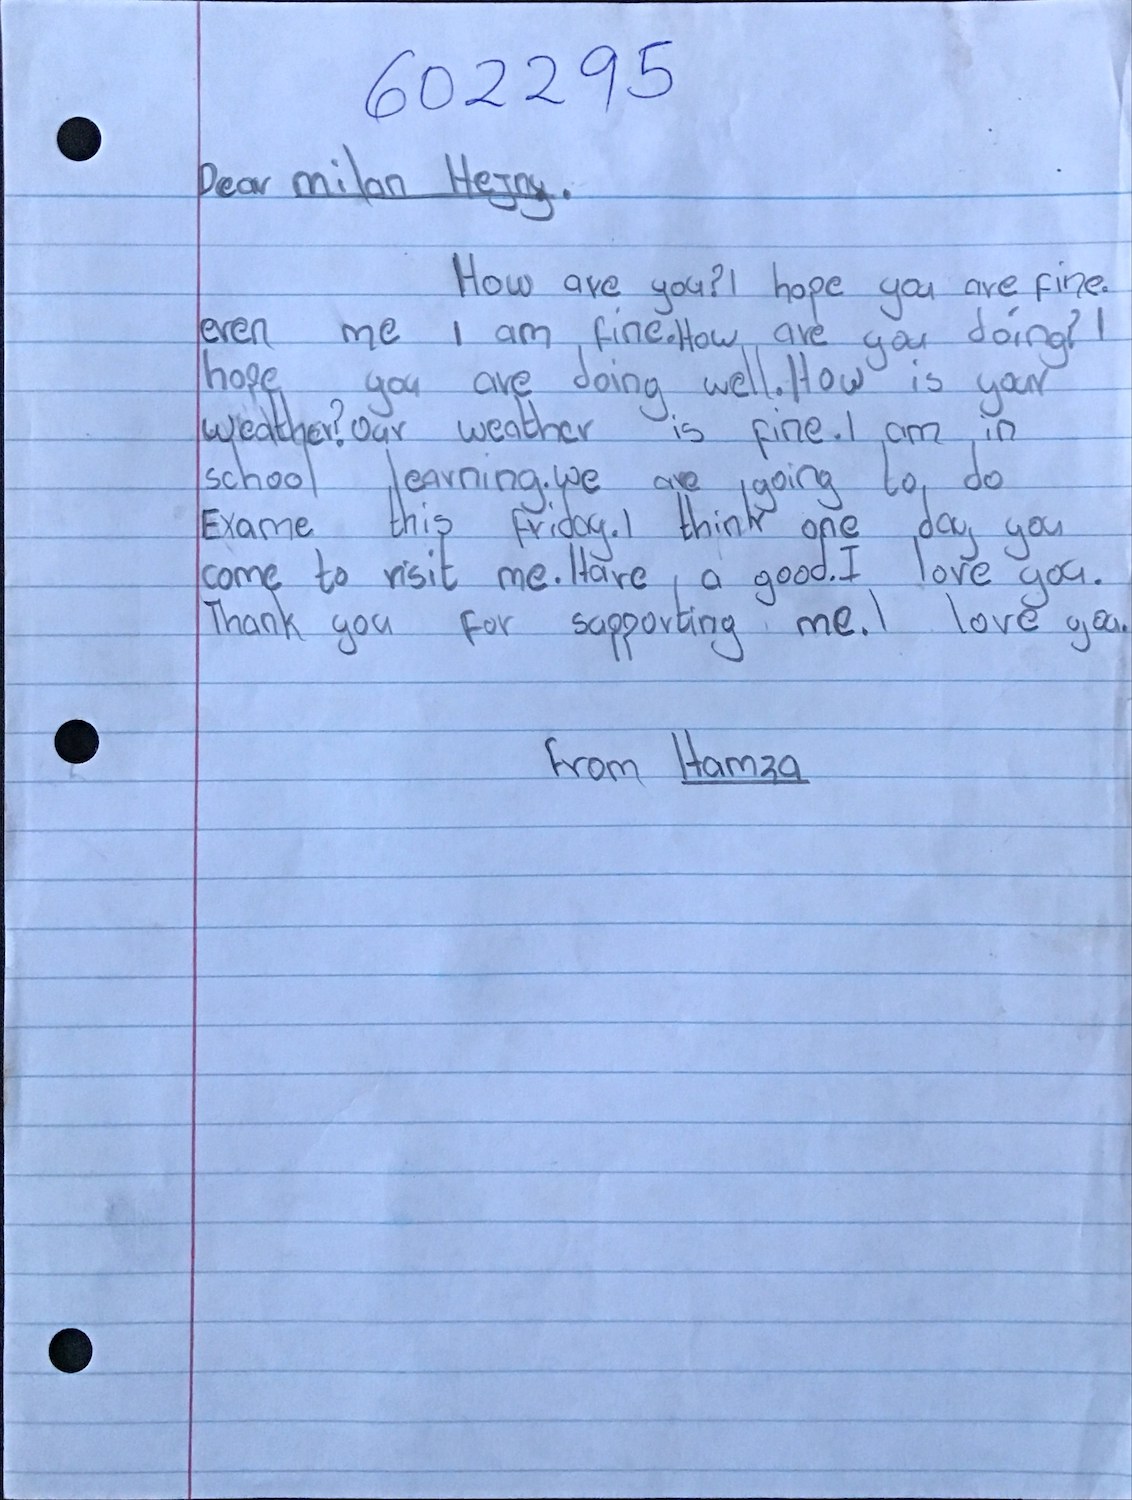 602295
Dear milan Hejny.
How are you? I hope you are fine.
even me I am fine. How are you doing? I
hope you are doing well. How is your
weather? Our weather is fine. I am in
school learning. we are going to do
Exame this friday. I think one day you
come to visit me. Have a good. I love you.
Thank you for supporting me. I love you.
From Hamza